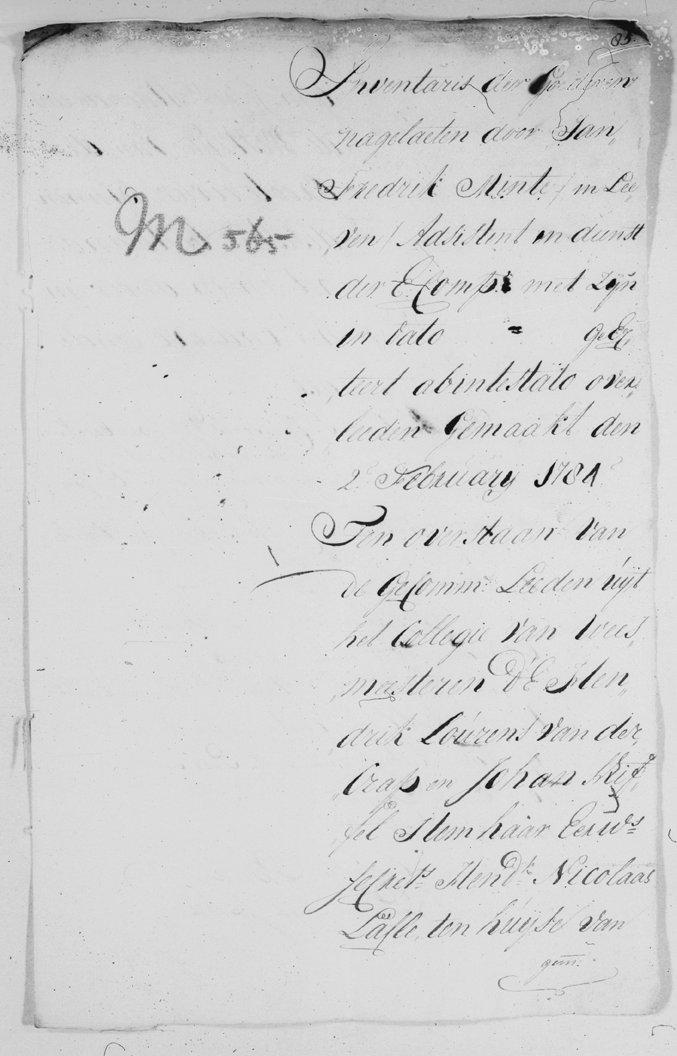 85
Inventaris der Goederen
nagelaeten door Jan,
Fredrik Minte / in Lee
ven / Adsistent in dienst
der E: Comp: met zijn
in tato " geEc
teert abintestato over,
leeden Gemaakt den
2: February 1784
M 565
Ten overstaan van
de GeComm: Leeden uijt
het Collegie van Wees,
meesteren d'E Hen,
drik Lourens van der,
Crap en Johan
fel Item haar Eerw:s
secret:s Hend:k Nicolaas
ten huijse van
gem: